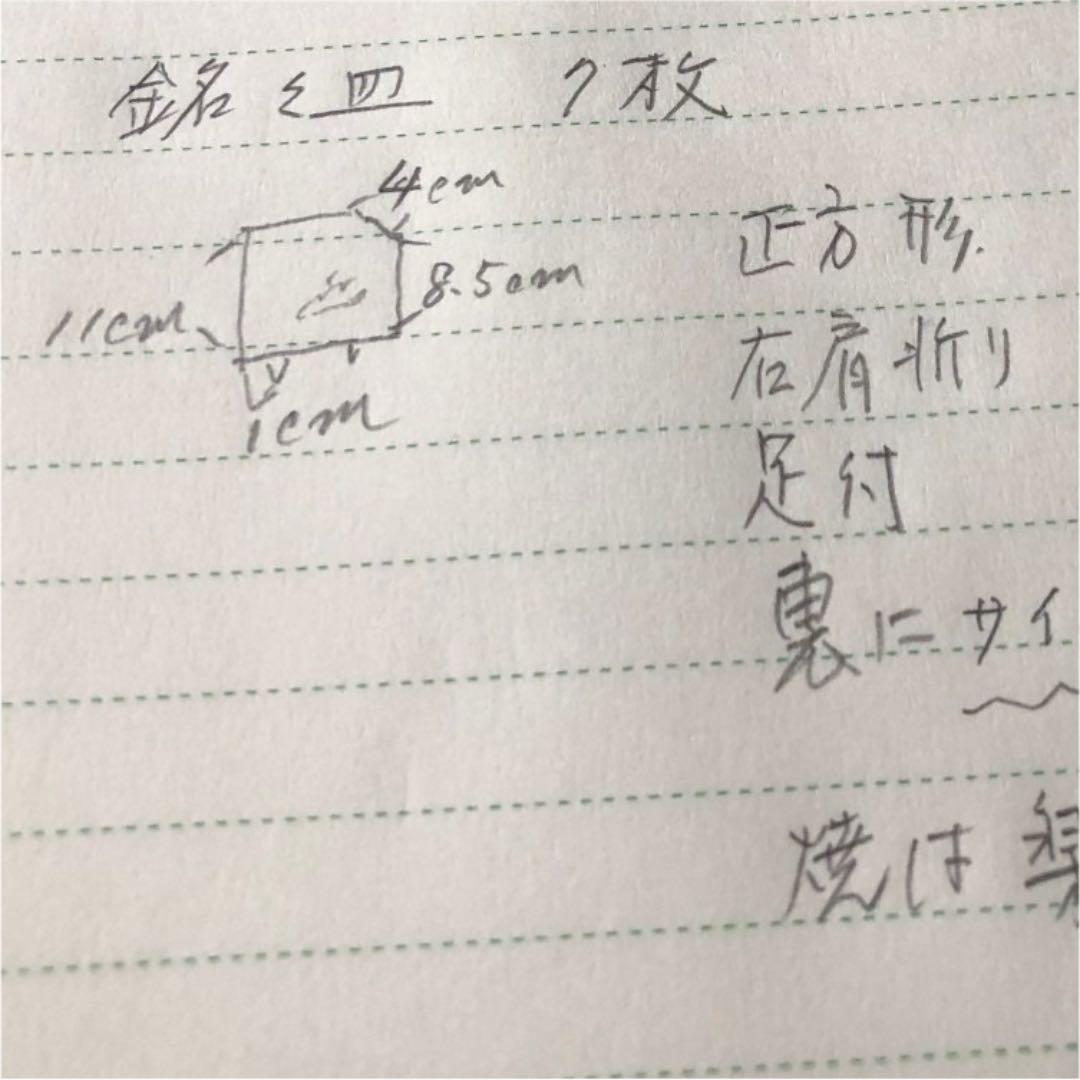 銘々皿 7枚
4cm
正方形.
8.5cm
11cm
右肩折り
1cm
足付
裏にサイ
焼は